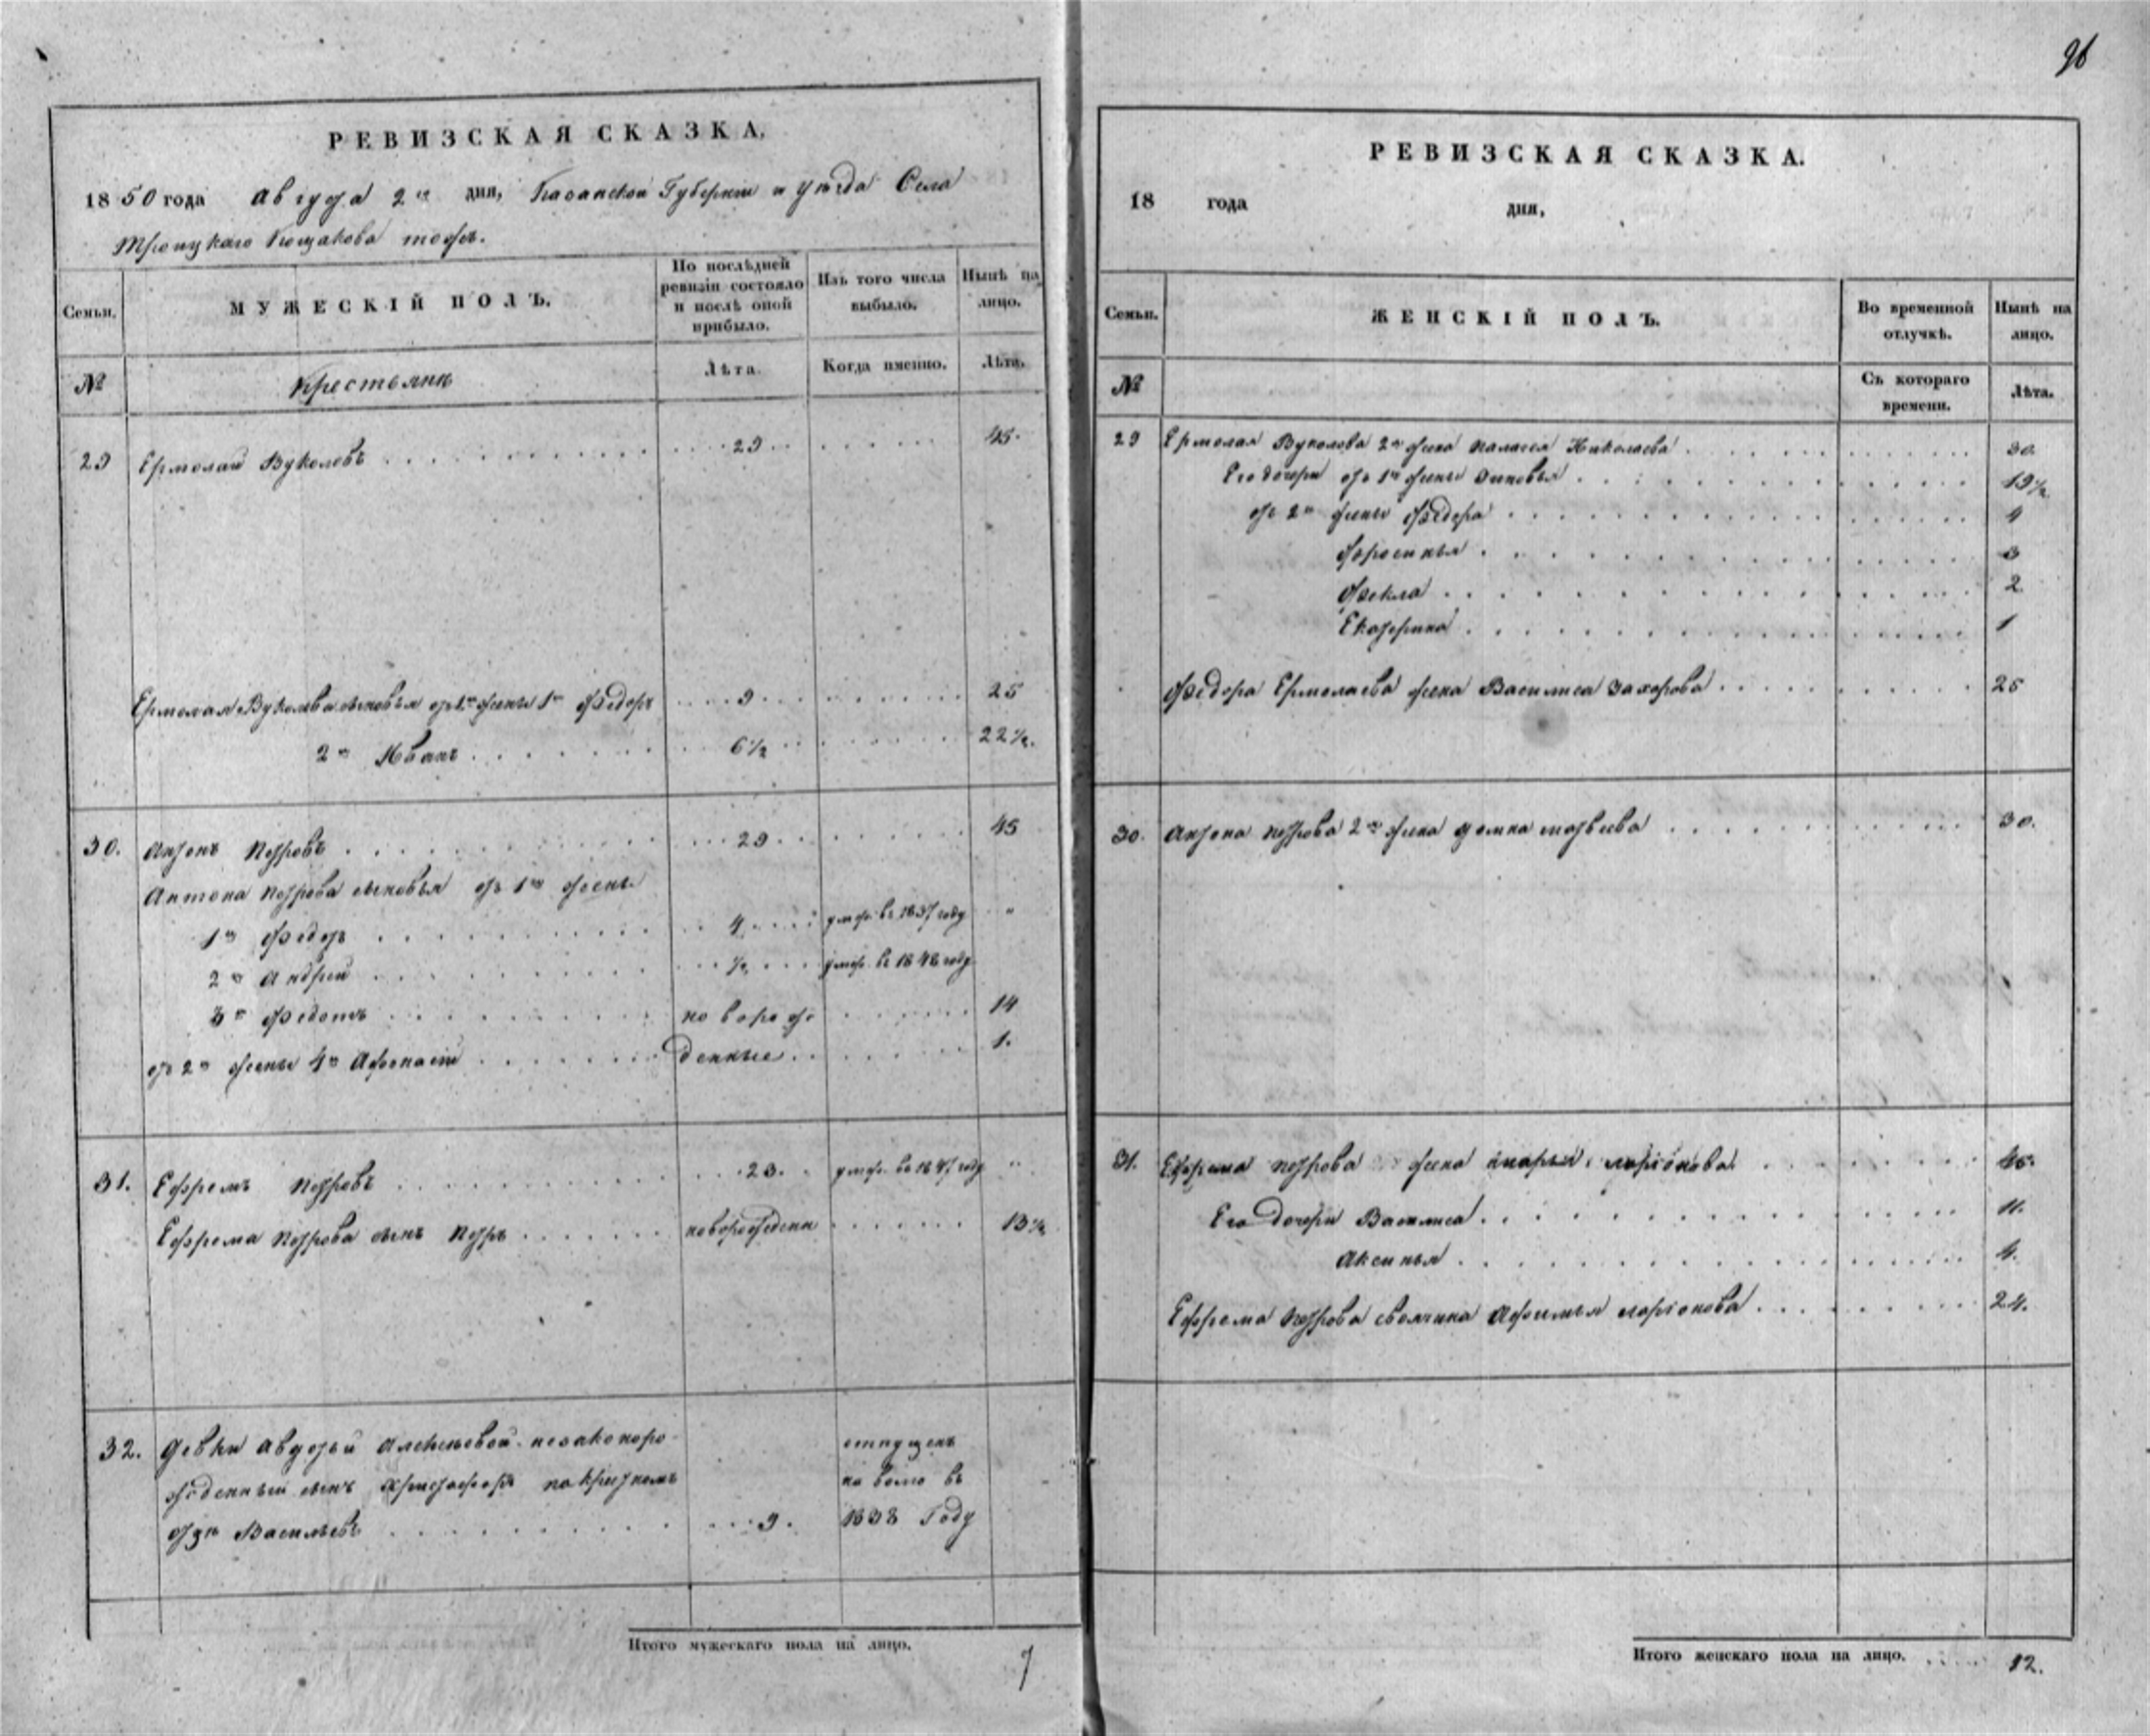 96
РЕВИЗСКАЯ СКАЗКА.
1850 года Августа 2го дня, Казанской Губернии и уѣзда Села
Троицкаго Кощакова тожъ.
Семьи.
МУЖЕСКІЙ ПОЛЪ.
По послѣдней ревизіи состояло и послѣ оной прибыло.
Изъ того числа выбыло.
Нынѣ на лицо.
№
Крестьянѣ
Лѣта.
Когда именно.
Лѣта.
29 Ермолай Вуколовъ 29 45.
Ермолая Вуколова сыновья отъ 1й жены 1й Ѳедоръ 9 25
2й Иванъ 6½ 22½.
30. Антонъ Петровъ 29 45
Антона Петрова сыновья отъ 1й жены
1й Ѳедоръ 4 умеръ въ 1837 году "
2й Андрей ½ умеръ въ 1848 году
3й Ѳедотъ новорож 14
отъ 2й жены 4й Афонасій денные 1.
31. Ефремъ Петровъ 23. умеръ въ 1847 году "
Ефрема Петрова сынъ Петръ новорожденъ 13½
32. Девки Авдотьи Алексѣевой незаконоро-
жденный сынъ Христофоръ по крестномъ
отцѣ Васильевъ 9. отпущенъ на волю въ 1838 Году
Итого мужескаго пола на лицо. 7
РЕВИЗСКАЯ СКАЗКА.
18 года дня,
Семьи.
ЖЕНСКІЙ ПОЛЪ.
Во временной отлучкѣ.
Нынѣ на лицо.
№
Съ котораго времени.
Лѣта.
29 Ермолая Вуколова 2я жена Паласея Николаева 30.
Его дочери отъ 1й жены Зиновья 19½
отъ 2й жены Ѳедора 4
Ѳфросинья 3
Ѳекла 2
Екатерина 1
Ѳедора Ермолаева жена Василиса Захарова 25
30. Антона Петрова 2я жена Домна Матвеева 30.
31. Ефрема Петрова жена Марья Ларіонова 45.
Его дочери Василиса 11.
Аксинья 4.
Ефрема Петрова своячина Афимья Ларіонова 24.
Итого женскаго пола на лицо. 12.